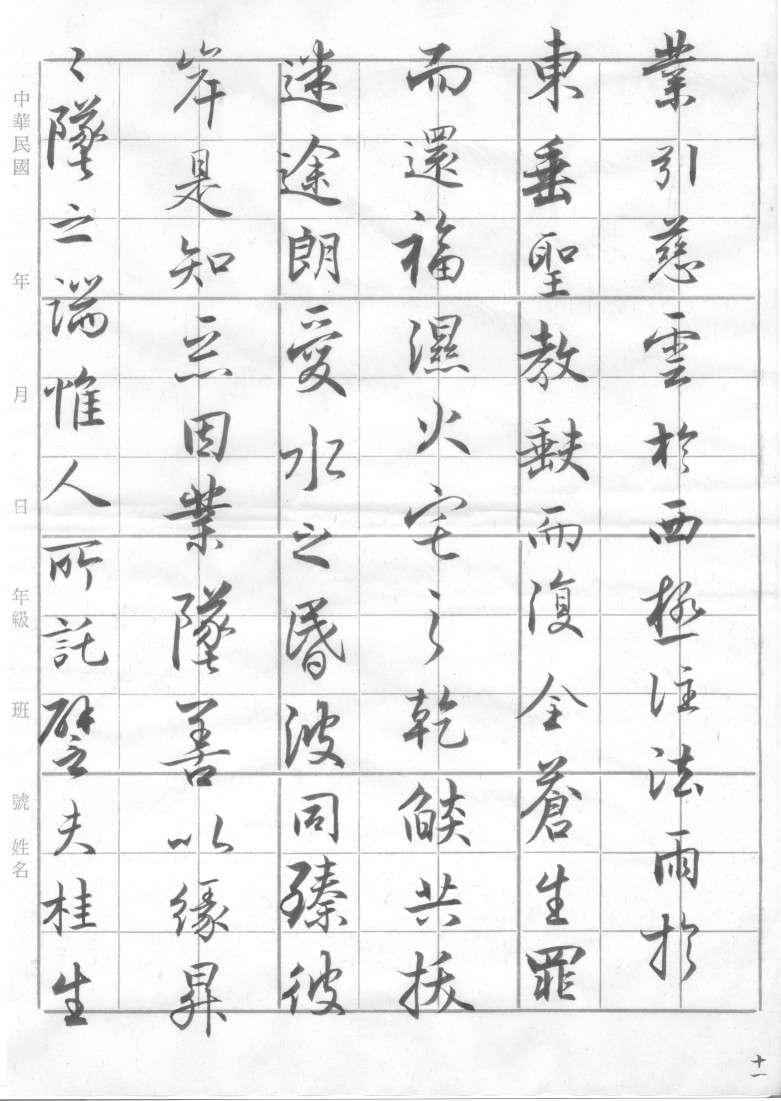 業引慈雲於西極注法雨於
東垂聖教缺而復全蒼生罪
而還福濕火宅之乾燄共拔
迷途朗愛水之昏波同臻彼
岸是知惡因業墜善以緣昇
〻墜之端惟人所託譬夫桂生
中華民國 年 月 日 年級 班 號 姓名
十一